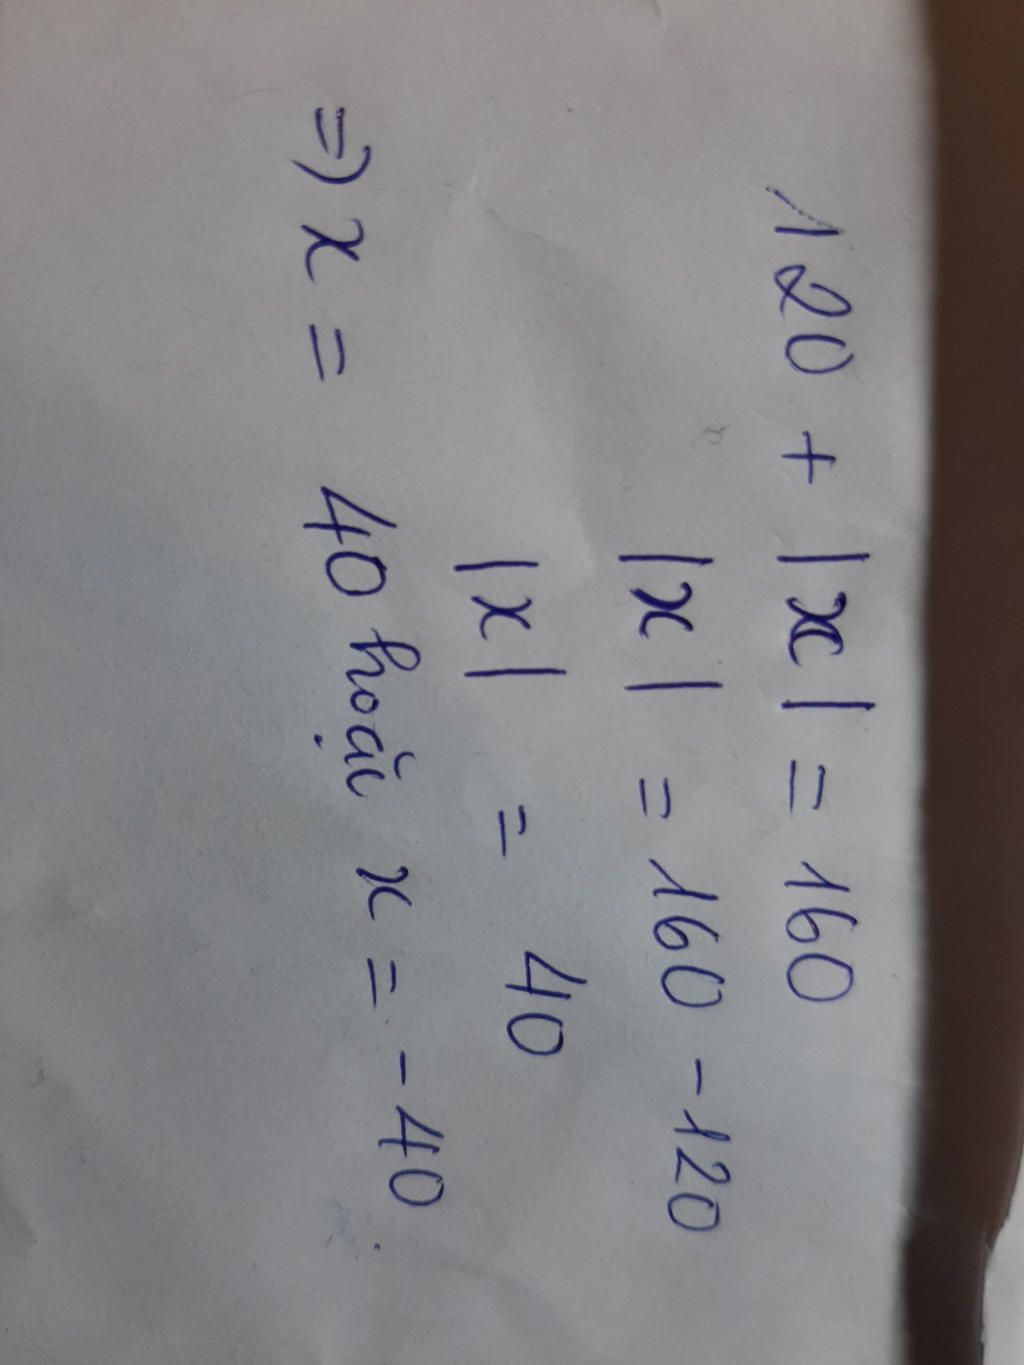 120 + |x| = 160
|x| = 160 - 120
|x| = 40
=> x = 40 hoặc x = - 40